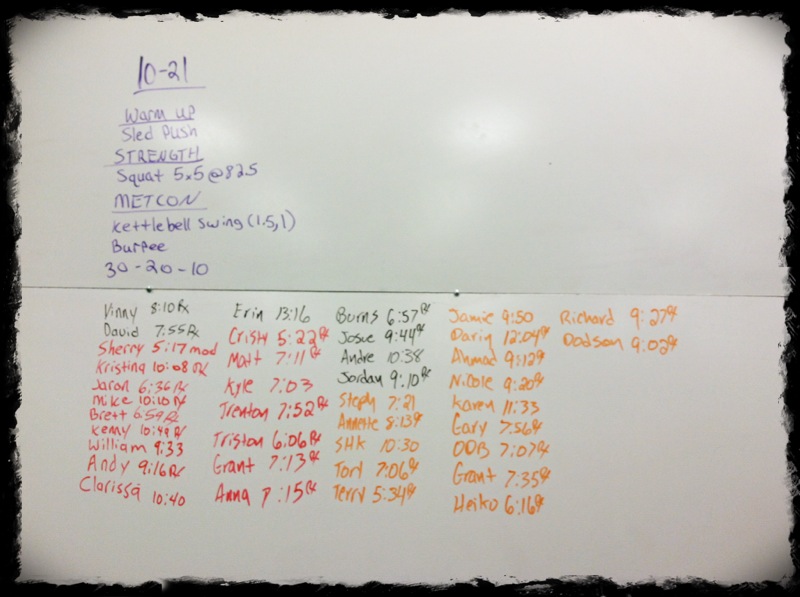 10-21
Warm up
Sled Push
STRENGTH
Squat 5x5@82.5
METCON
Kettlebell Swing (1.5,1)
Burpee
30-20-10
Vinny 8:10 Rx
David 7:55 Rx
Sherry 5:17 mod
Kristina 10:08 Rx
Jaron 6:36 Rx
Mike 10:10 Rx
Brett 6:59 Rx
Kenny 10:49 Rx
William 9:33
Andy 9:16 Rx
Clarissa 10:40
Erin 13:16
Cristy 5:22 Rx
Matt 7:11 Rx
Kyle 7:03
Trenton 7:52 Rx
Triston 6:06 Rx
Grant 7:13 Rx
Anna 7:15 Rx
Burns 6:57 Rx
Josue 9:44 Rx
Andre 10:38
Jordan 9:10 Rx
Steph 7:21
Annette 8:13 Rx
SHK 10:30
Tory 7:06 Rx
Terry 5:34 Rx
Jamie 9:50
Darin 12:04 Rx
Ahmad 9:12 Rx
Nicole 9:20 Rx
Karen 11:33
Gary 7:56 Rx
ODB 7:07 Rx
Grant 7:35 Rx
Heiko 6:16 Rx
Richard 9:27 Rx
Dodson 9:02 Rx